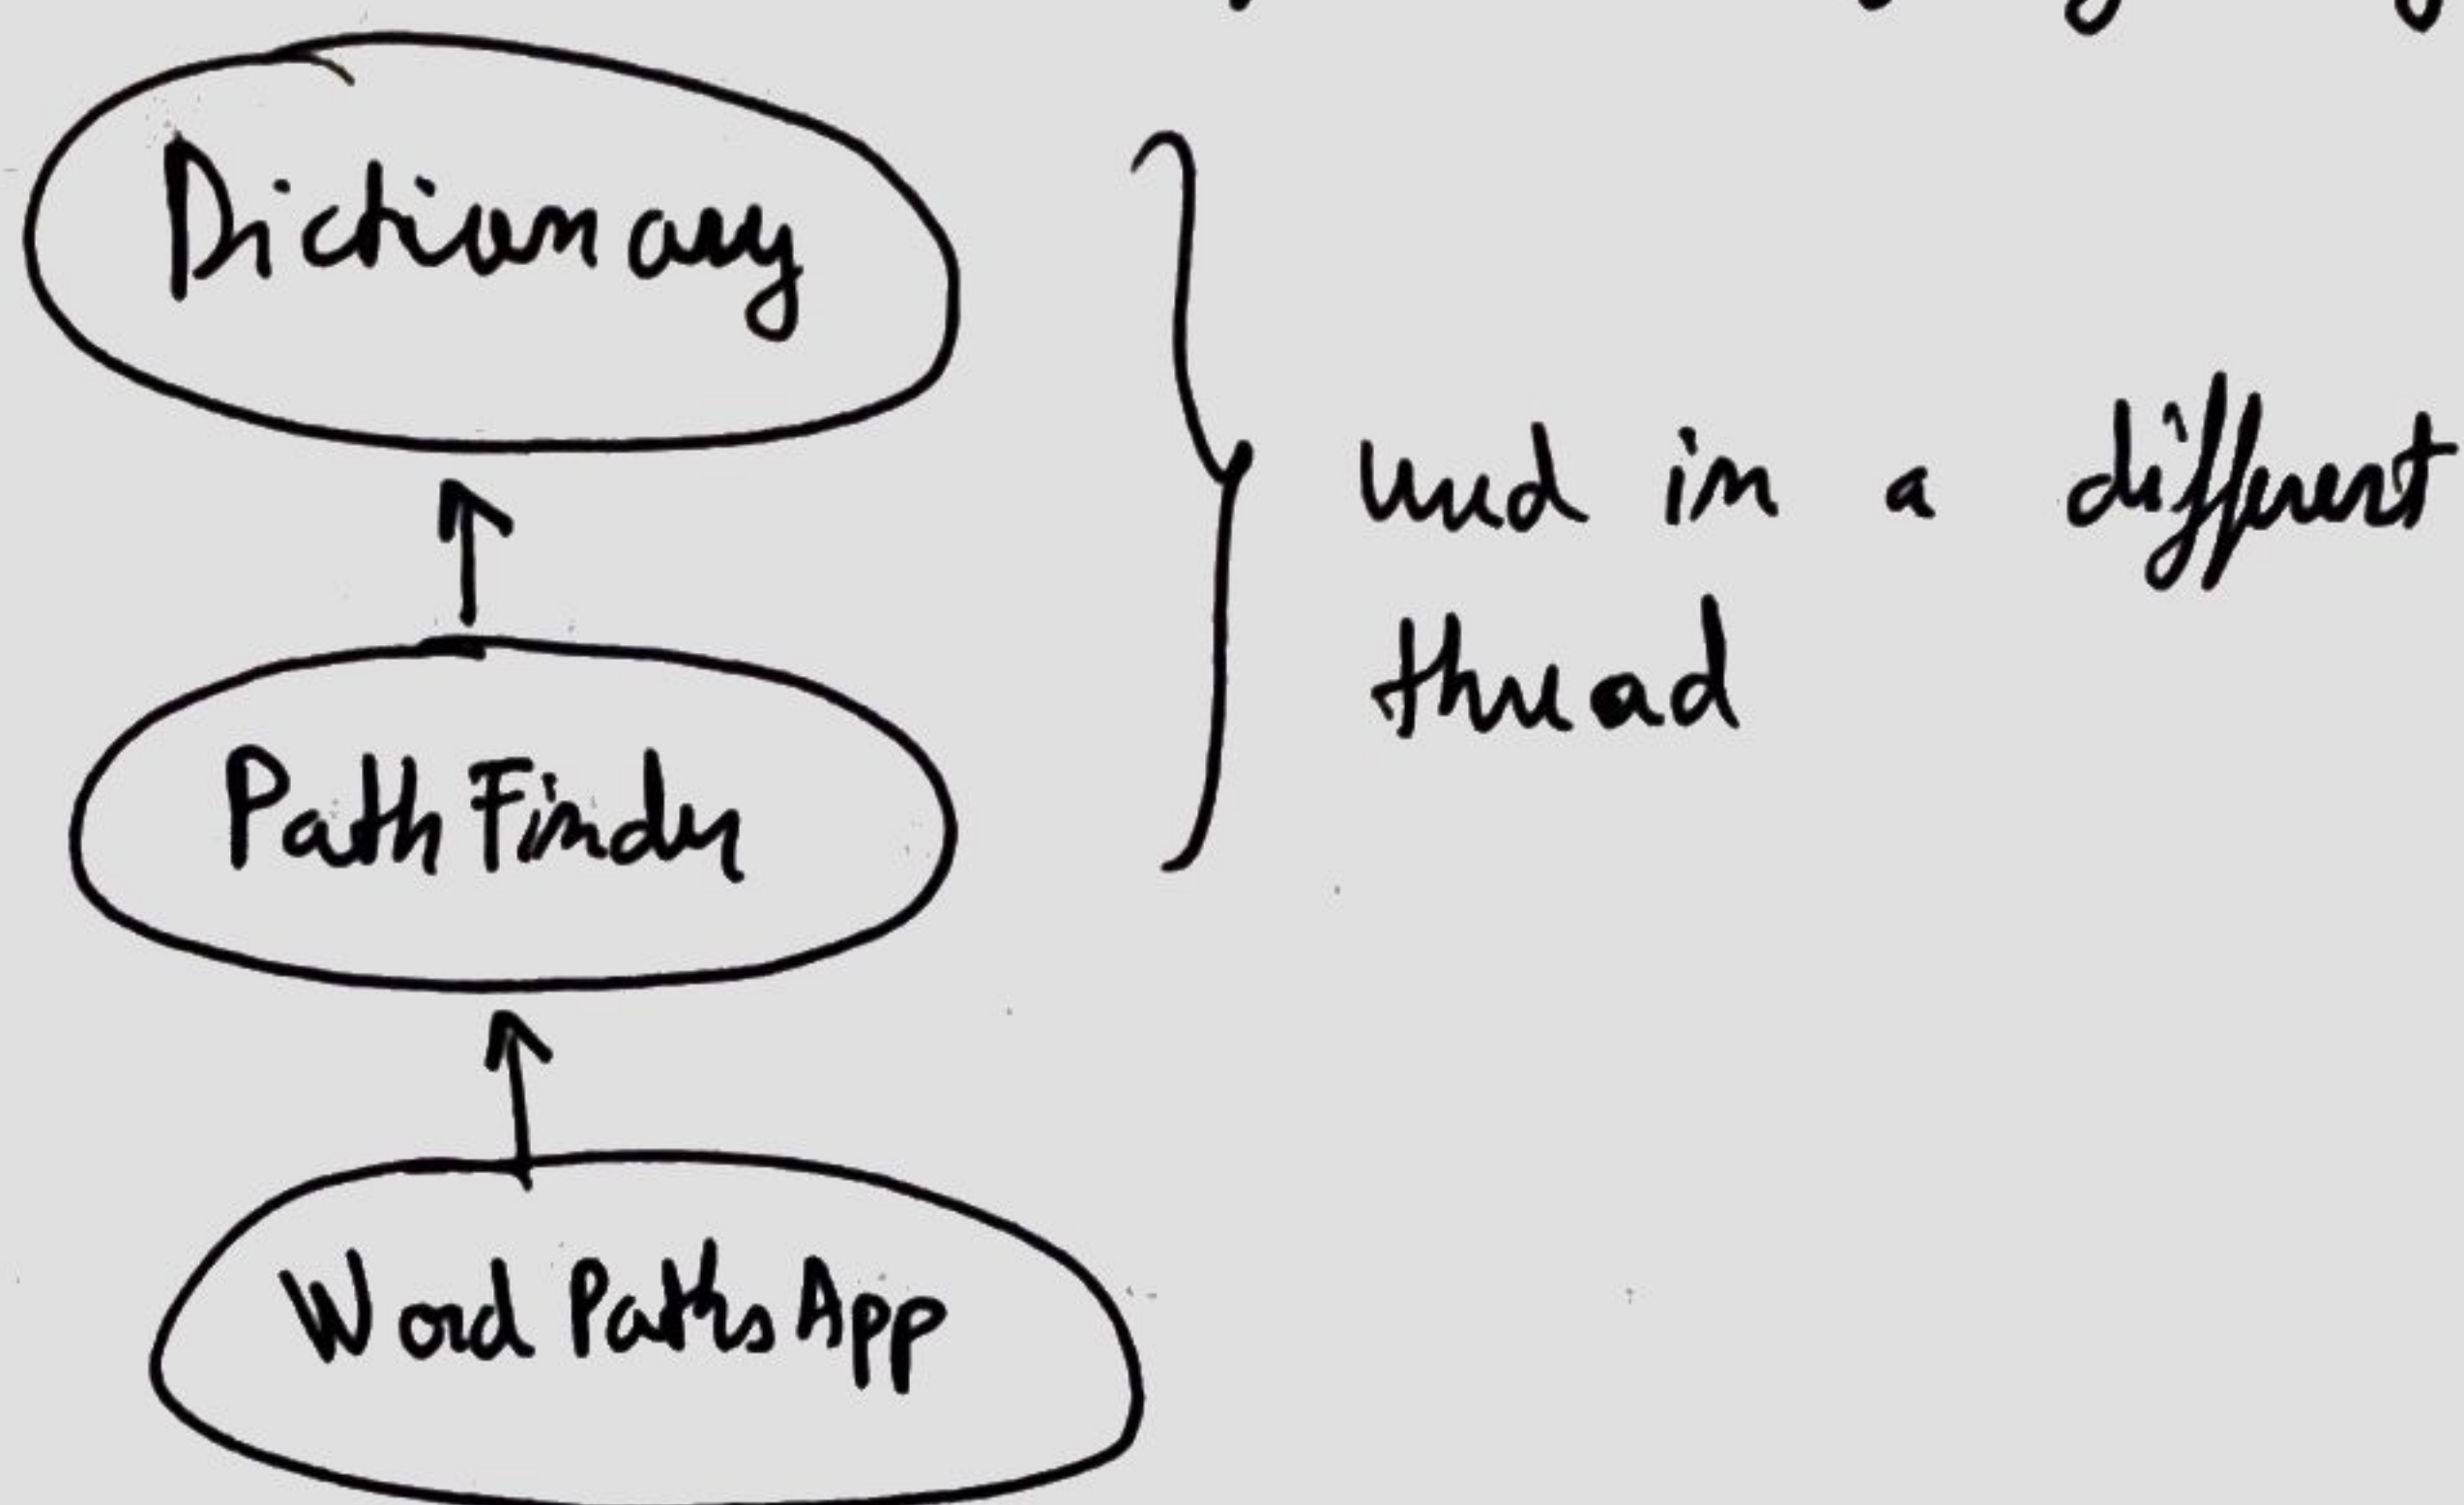 Dictionary
used in a different
thread
PathFinder
WordPathsApp